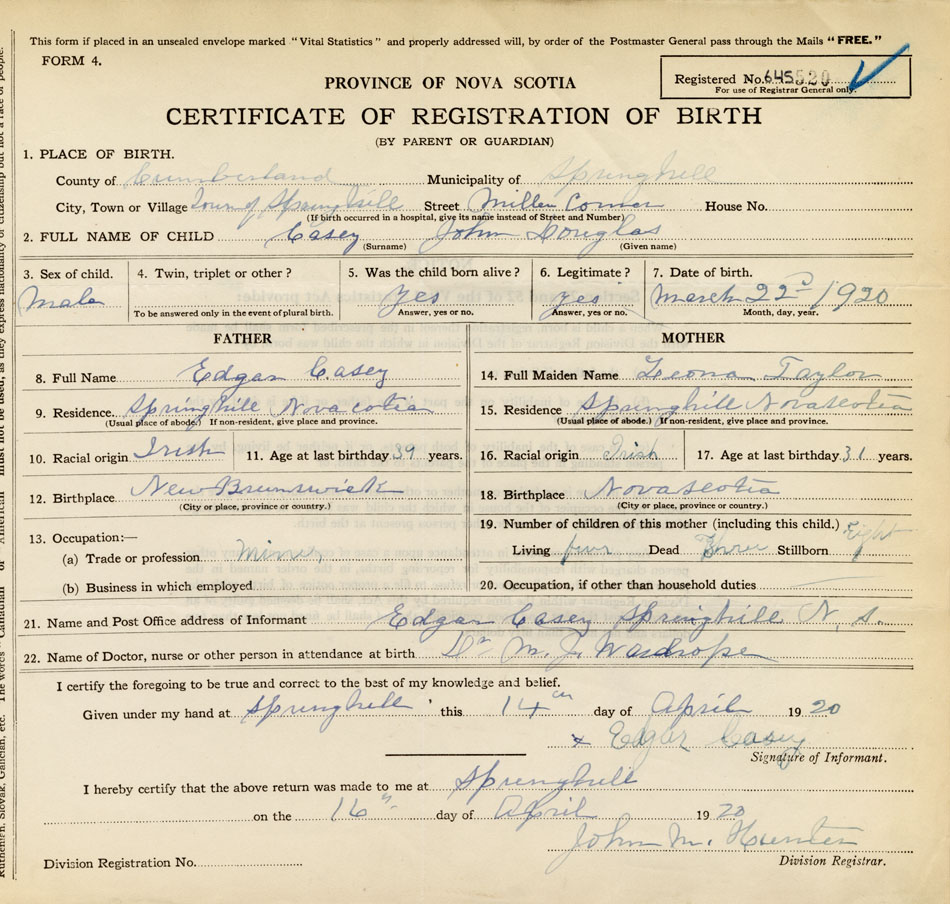 This form if placed in an unsealed envelope marked "Vital Statistics" and properly addressed will, by order of the Postmaster General pass through the Mails "FREE."
FORM 4.
Registered No. 645520
For use of Registrar General only.
PROVINCE OF NOVA SCOTIA
CERTIFICATE OF REGISTRATION OF BIRTH
(BY PARENT OR GUARDIAN)
1. PLACE OF BIRTH.
County of Cumberland Municipality of Springhill
City, Town or Village Town of Springhill Street Miller Corner House No.
(If birth occurred in a hospital, give its name instead of Street and Number)
2. FULL NAME OF CHILD Casey John Douglas
(Surname) (Given name)
3. Sex of child. 4. Twin, triplet or other? 5. Was the child born alive? 6. Legitimate? 7. Date of birth.
Male yes yes March 22nd 1920
To be answered only in the event of plural birth. Answer, yes or no. Answer, yes or no. Month, day, year.
FATHER MOTHER
8. Full Name Edgar Casey 14. Full Maiden Name Leona Taylor
9. Residence. Springhill Nova cotia 15. Residence Springhill Nova scotia
(Usual place of abode.) If non-resident, give place and province. (Usual place of abode.) If non-resident, give place and province.
10. Racial origin Irish 11. Age at last birthday 39 years. 16. Racial origin Irish 17. Age at last birthday 31 years.
12. Birthplace New Brunswick 18. Birthplace Nova scotia
(City or place, province or country.) (City or place, province or country.)
13. Occupation:— 19. Number of children of this mother (including this child.) Eight
(a) Trade or profession. Miner Living four Dead Stillborn
(b) Business in which employed 20. Occupation, if other than household duties
21. Name and Post Office address of Informant Edgar Casey Springhill N. S.
22. Name of Doctor, nurse or other person in attendance at birth. Dr M. J. Wardrope
I certify the foregoing to be true and correct to the best of my knowledge and belief.
Given under my hand at Springhill this 14 day of April 1920
x Edgar Casey
Signature of Informant.
I hereby certify that the above return was made to me at Springhill
on the 16 day of April 1920
John M. Hunter
Division Registrar.
Division Registration No.